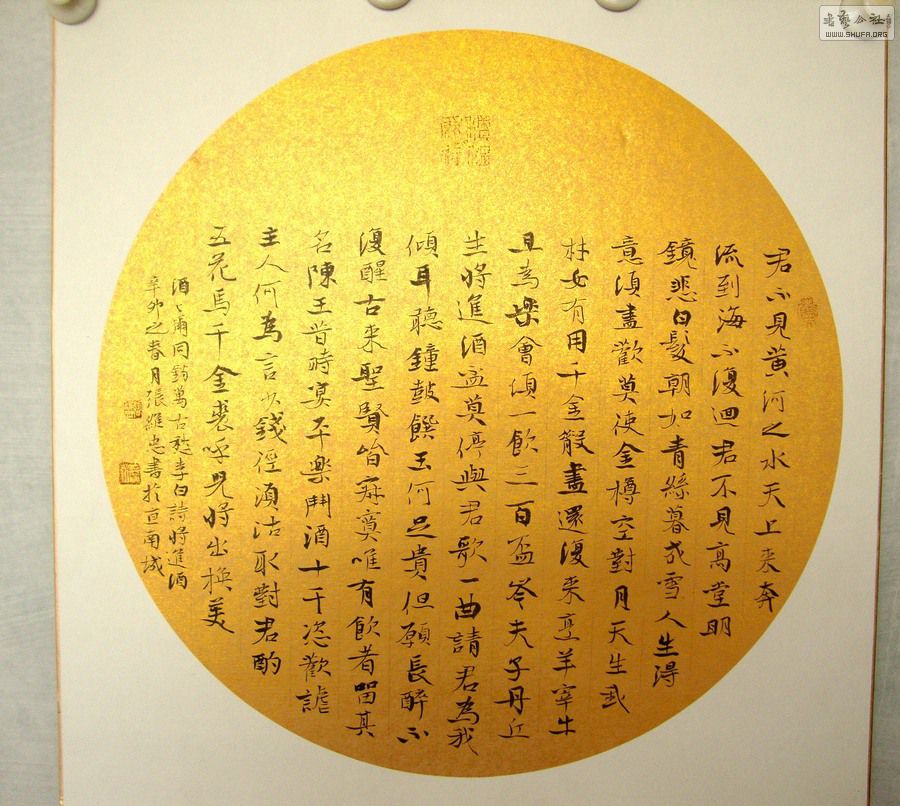 君不見黃河之水天上来奔
流到海不復迴君不見高堂明
鏡悲白髮朝如青絲暮成雪人生得
意須盡歡莫使金樽空對月天生我
材必有用千金散盡還復来烹羊宰牛
且為樂會須一飲三百盃岑夫子丹丘
生將進酒盃莫停與君歌一曲請君為我
傾耳聽鐘鼓饌玉何足貴但願長醉不
復醒古来聖賢皆寂寞唯有飲者留其
名陳王昔時宴平樂鬥酒十千恣歡謔
主人何為言少錢徑須沽取對君酌
五花馬千金裘呼兒將出換美
酒与爾同銷萬古愁李白詩將進酒
辛卯之春月張維忠書於宣南城
WWW.SHUFA.ORG